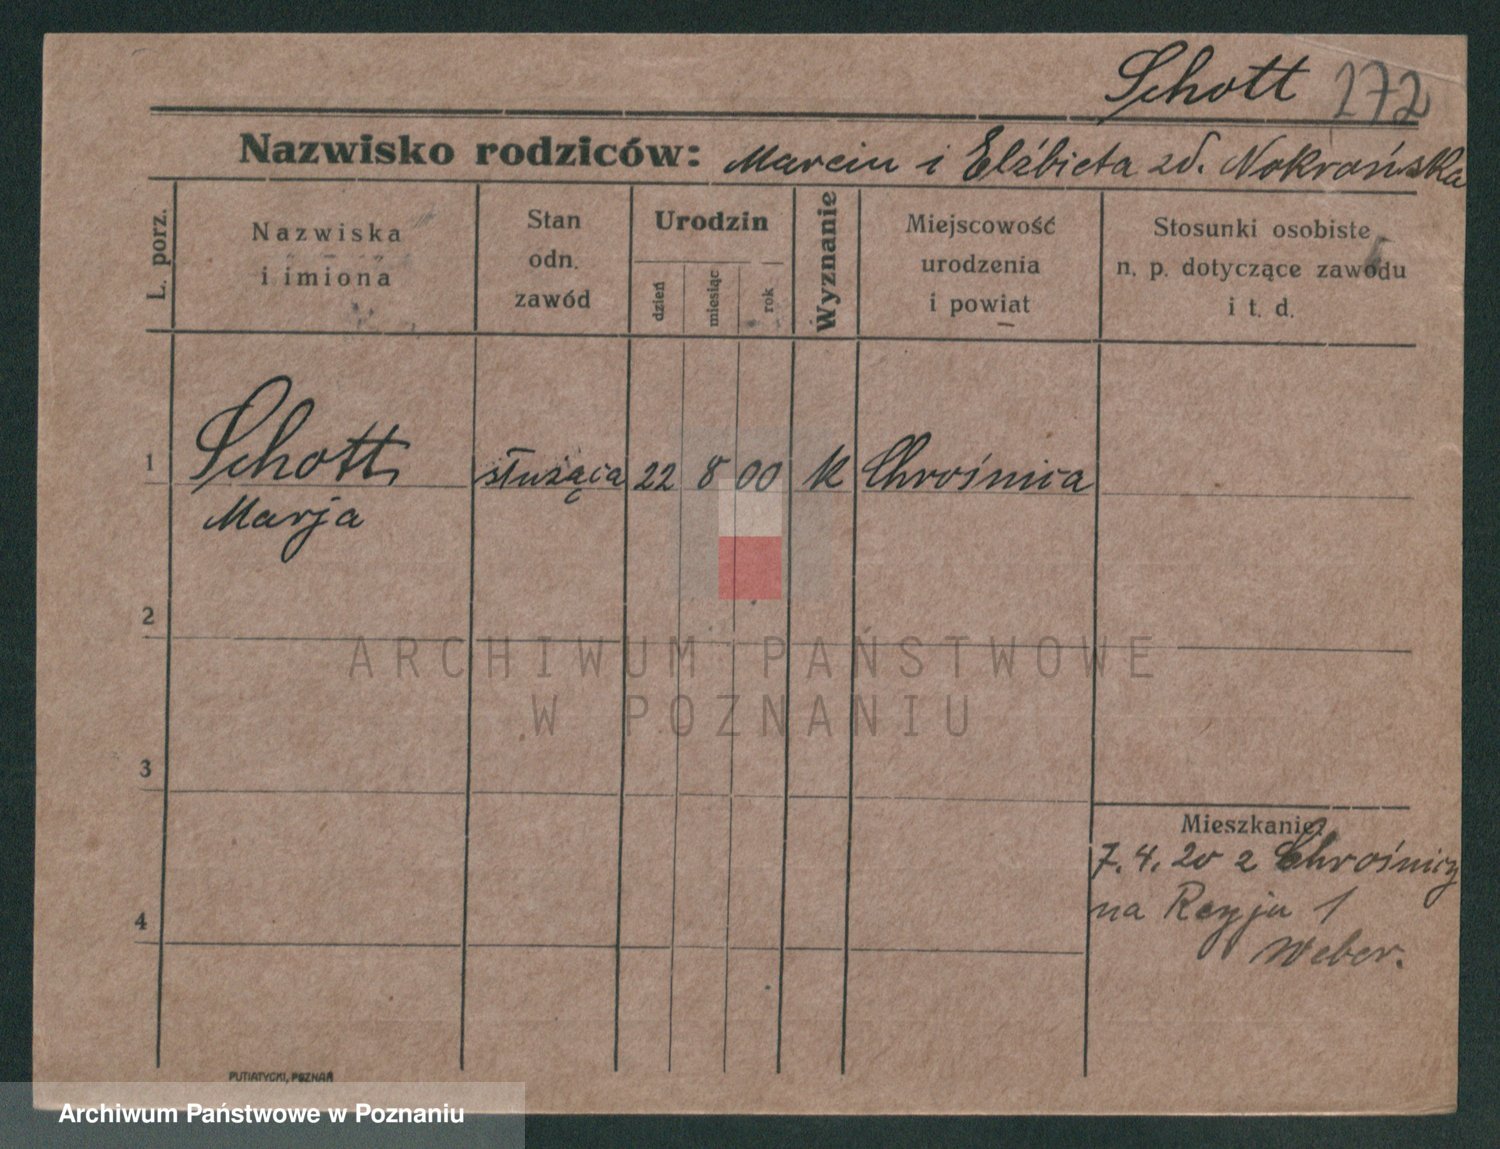 Schott 272
Nazwisko rodziców: Marcin i Elżbieta zd. Nokrońska
L. porz.
Nazwiska
i imiona
Stan
odn.
zawód
Urodzin
dzień
miesiąc
rok
Wyznanie
Miejscowość
urodzenia
i powiat
Stosunki osobiste
n. p. dotyczące zawodu
i t. d.
1 Schott służąca 22 8 00 k Chrośnica
Marja
2
ARCHIWUM PAŃSTWOWE
W POZNANIU
3
Mieszkanie:
7. 4. 20 z Chrośnicy
na 1
4
Weber.
PUTIATYCKI, POZNAŃ
Archiwum Państwowe w Poznaniu